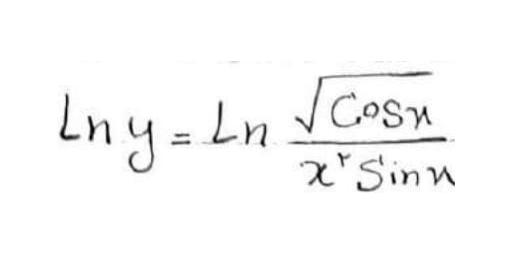 Ln y = Ln √Cosx / x² Sinx